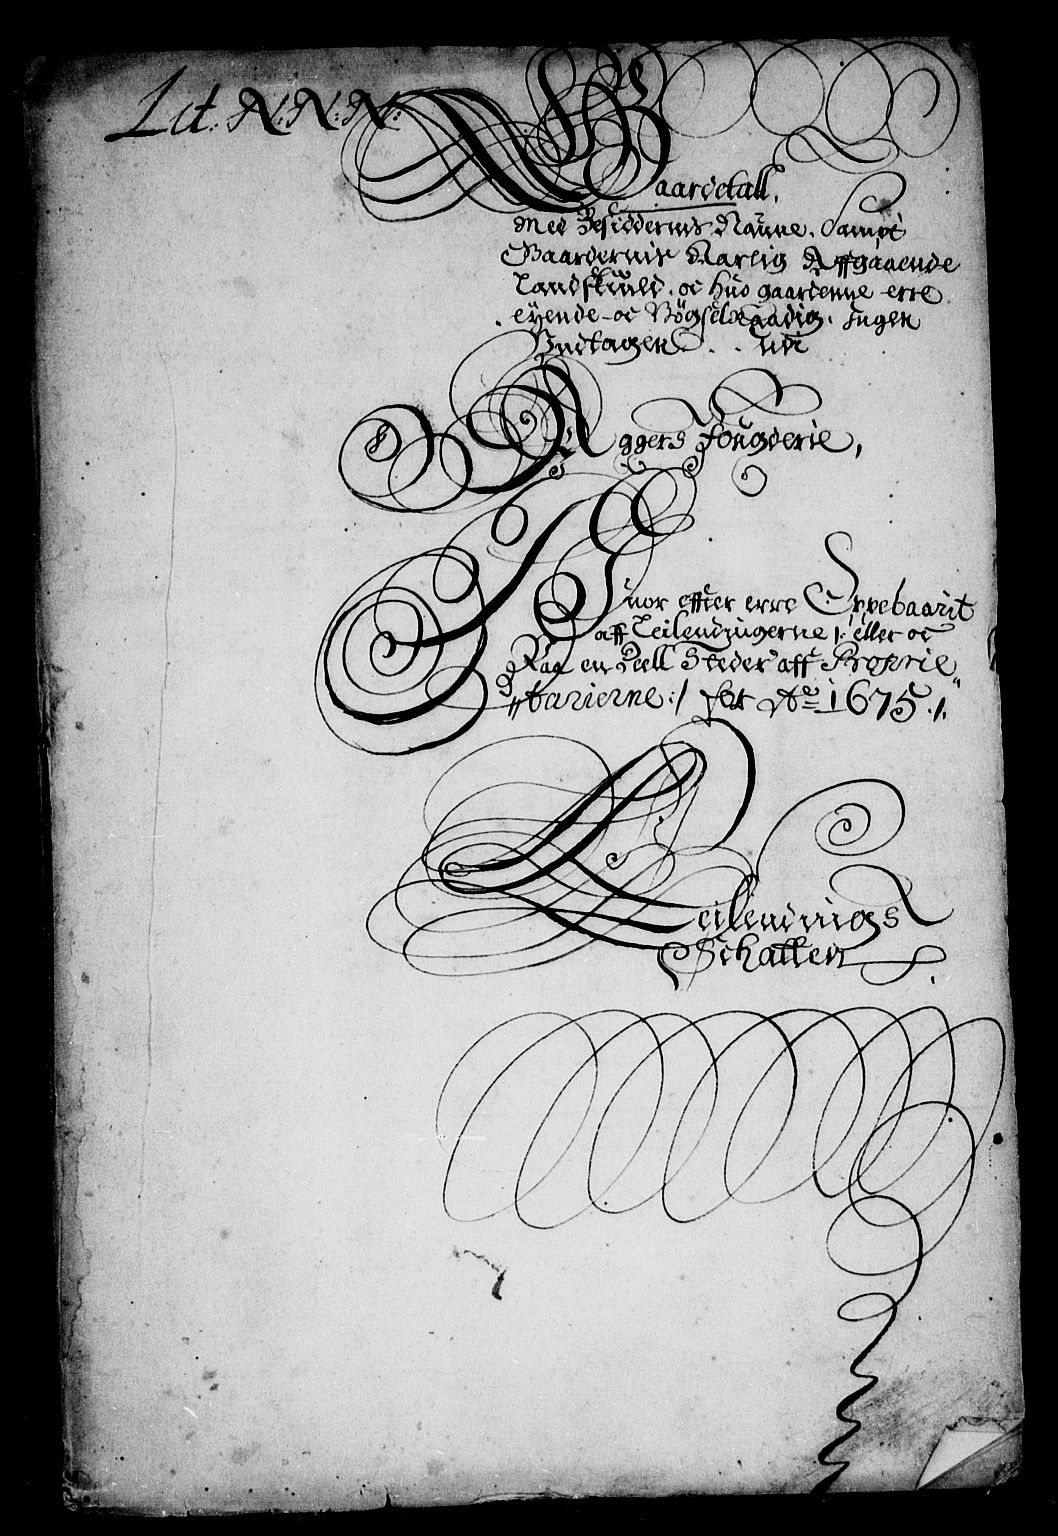 Lit. N: N: N:
Gaardetall,
Med Besiddernis Naune, Sampt
Gaardernis Aarlig Affgaaende
Landskuld, oc huo gaardenne erre
eyende oc Bøgselraadig, Ingen
Undtagen . . Udi
Aggers Fougderie,
Huor effter erre Oppebaarit
aff Leilendingerne /: eller oc
Paa en Deell Steder aff Proprie
tarierne :/ for Ao 1675 ./.
Leilendings
Schatten